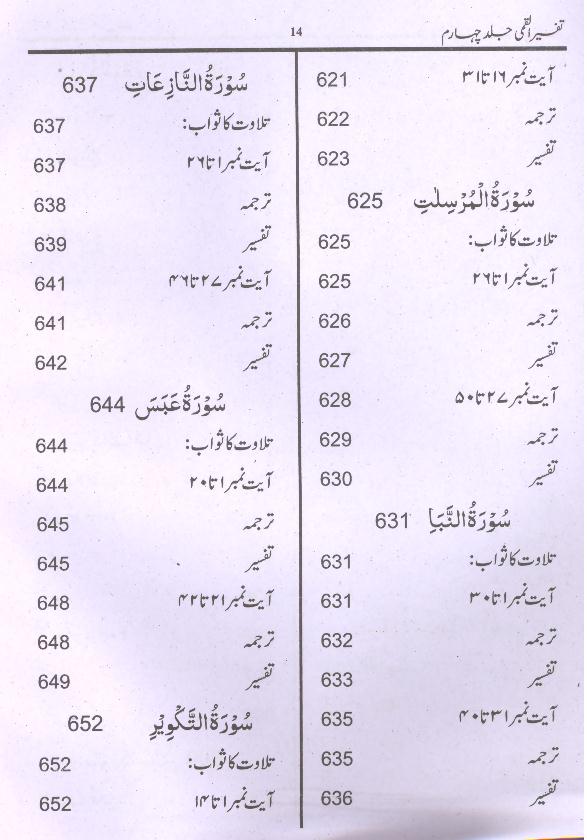 تفسیر القمی جلد چہارم 14
آیت نمبر ۱۶ تا ۳۱ 621
ترجمہ 622
تفسیر 623
سُوْرَةُ الْمُرْسِلٰتِ 625
تلاوت کا ثواب: 625
آیت نمبر ۱ تا ۲۶ 625
ترجمہ 626
تفسیر 627
آیت نمبر ۲۷ تا ۵۰ 628
ترجمہ 629
تفسیر 630
سُوْرَةُ النَّبَاِ 631
تلاوت کا ثواب: 631
آیت نمبر ۱ تا ۳۰ 631
ترجمہ 632
تفسیر 633
آیت نمبر ۳۱ تا ۴۰ 635
ترجمہ 635
تفسیر 636
سُوْرَةُ النَّازِعَاتِ 637
تلاوت کا ثواب: 637
آیت نمبر ۱ تا ۲۶ 637
ترجمہ 638
تفسیر 639
آیت نمبر ۲۷ تا ۴۶ 641
ترجمہ 641
تفسیر 642
سُوْرَةُ عَبَسَ 644
تلاوت کا ثواب: 644
آیت نمبر ۱ تا ۲۰ 644
ترجمہ 645
تفسیر 645
آیت نمبر ۲۱ تا ۴۲ 648
ترجمہ 648
تفسیر 649
سُوْرَةُ التَّكْوِيْرِ 652
تلاوت کا ثواب: 652
آیت نمبر ۱ تا ۱۴ 652